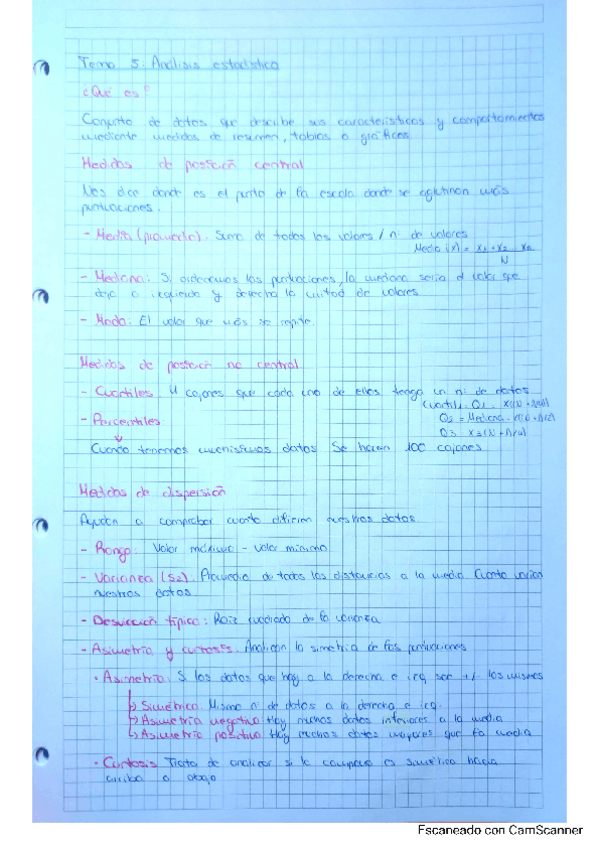 Tema 5: Análisis estadístico
¿Qué es?
Conjunto de datos que describe sus características y comportamientos
mediante medidas de resumen, tablas o gráficos.
Medidas de posición central
Nos dice donde es el punto de la escala donde se aglutinan más
puntuaciones.
- Media (promedio): Suma de todos los valores / nº de valores
Media (x) = x1 + x2 xn
N
- Mediana: Si ordenamos las puntuaciones, la mediana sería el valor que
deja a izquierda y derecha la mitad de valores
- Moda: El valor que más se repite.
Medidas de posición no central
- Cuartiles: 4 cajones que cada uno de ellos tenga un nº de datos
Cuartil: Q1
- Percentiles
Q2 = Mediana
Q3
Cuando tenemos muchísimos datos Se hacen 100 cajones
Medidas de dispersión
Ayudan a comprobar cuanto difieren nuestros datos
- Rango: Valor máximo - valor mínimo
- Varianza (S2): Promedio de todas las distancias a la media. Cuanto varían
nuestros datos
- Desviación típica: Raíz cuadrada de la varianza
- Asimetría y curtosis: Analizan la simetría de las puntuaciones
• Asimetría: Si los datos que hay a la derecha e izq son +/- los mismos
Simétrica: Mismo nº de datos a la derecha e izq.
Asimetría negativa Hay muchos datos inferiores a la media
Asimetría positiva Hay muchos datos mayores que la media
• Curtosis Trata de analizar si la campana es simétrica hacia
arriba o abajo
Escaneado con CamScanner